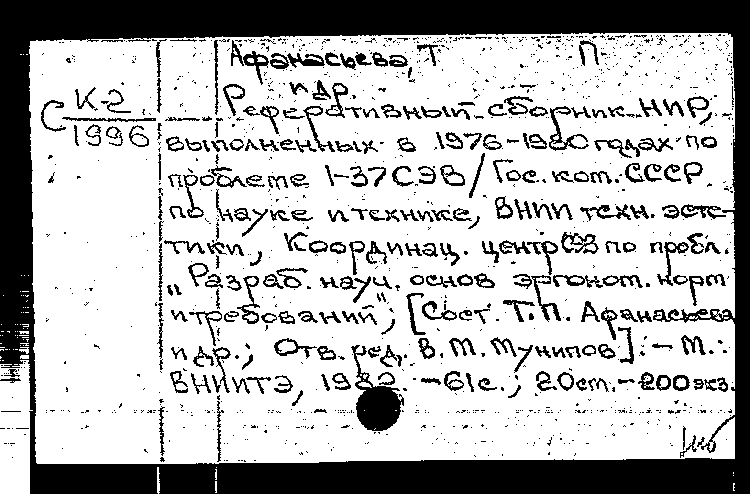 Афанасьева, Т П
и др.
С К-2
1996
Реферативный сборник НИР,
выполненных в 1976-1980 годах по
проблеме I-37 СЭВ / Гос. ком. СССР
по науке и технике, ВНИИ техн. эсте-
тики, Координац. центр СЭВ по пробл.
„Разраб. науч. основ эргоном. норм
и требований"; [Сост. Т.П. Афанасьева
и др.; Отв. ред. В.М. Мунипов]. - М.:
ВНИИТЭ, 1982. - 61 с.; 20 см. - 200 экз.